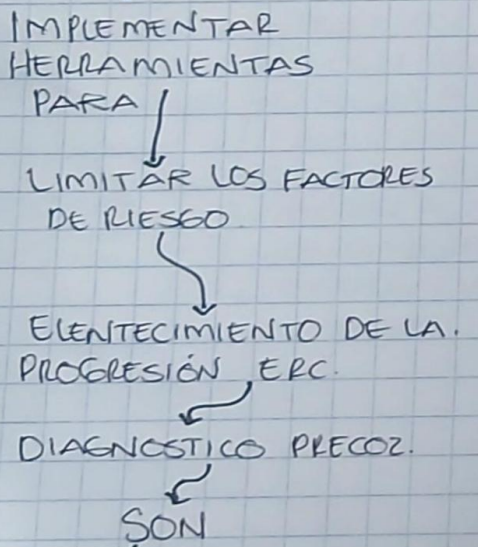 IMPLEMENTAR
HERRAMIENTAS
PARA
LIMITAR LOS FACTORES
DE RIESGO
ELENTECIMIENTO DE LA.
PROGRESIÓN ERC.
DIAGNOSTICO PRECOZ.
SON